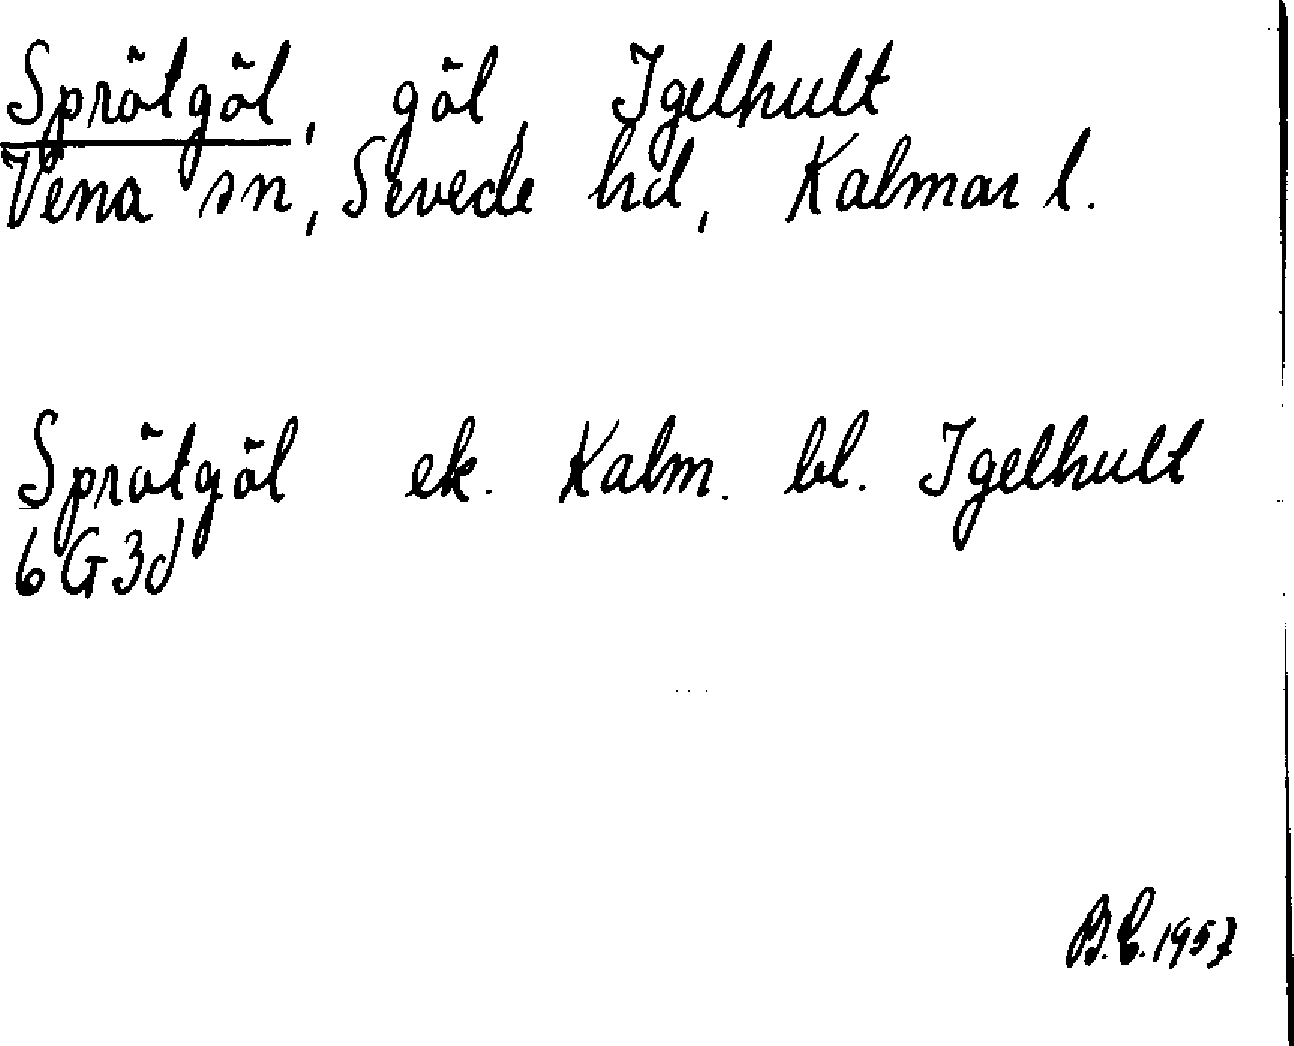 Sprötgöl, göl, Igelhult
Vena sn, Sevede hd, Kalmar l.
Sprötgöl ek. Kalm. bl. Igelhult
6G3d
B.E. 1957